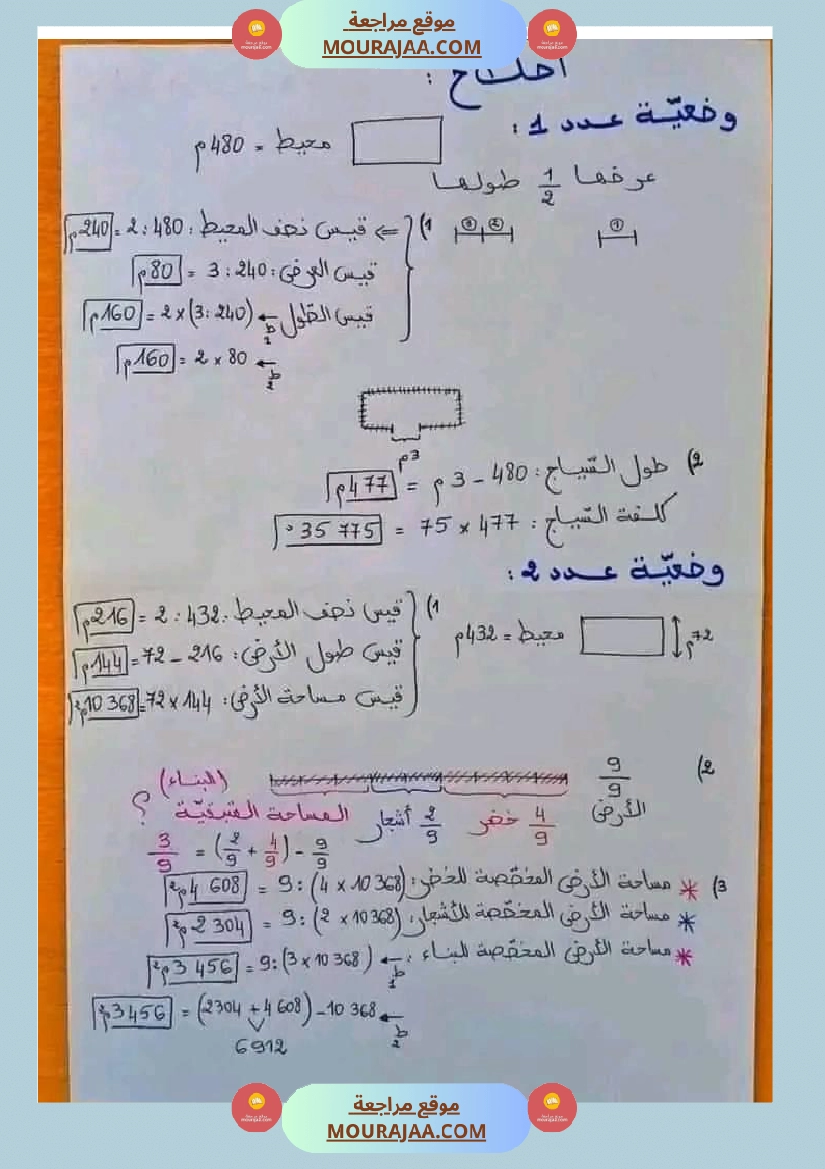 موقع مراجعة
MOURAJAA.COM
وضعيّة عدد 1 :
محيط = 480 م
عرضها 1/2 طولها
1) ⇐ قيس نصف المحيط : 480 : 2 = 240 م
قيس العرض : 240 : 3 = 80 م
قيس الطّول ط1 ← (240 : 3) × 2 = 160 م
ط2 ← 80 × 2 = 160 م
3 م
2) طول السّياج : 480 م - 3 م = 477 م
كلفة السّياج : 477 × 75 = 35 775 د
وضعيّة عدد 2 :
72 م
محيط = 432 م
1) قيس نصف المحيط : 432 : 2 = 216 م
قيس طول الأرض : 216 - 72 = 144 م
قيس مساحة الأرض : 144 × 72 = 10 368 م²
2) 9/9 الأرض
4/9 خضر
2/9 أشجار
المساحة المتبقيّة (البناء) ؟
9/9 - (4/9 + 2/9) = 3/9
3) * مساحة الأرض المخصّصة للخضر : (10 368 × 4) : 9 = 4 608 م²
* مساحة الأرض المخصّصة للأشجار : (10 368 × 2) : 9 = 2 304 م²
* مساحة الأرض المخصّصة للبناء : ط1 ← (10 368 × 3) : 9 = 3 456 م²
ط2 ← 10 368 - (4 608 + 2304) = 3 456 م²
6912
موقع مراجعة
MOURAJAA.COM